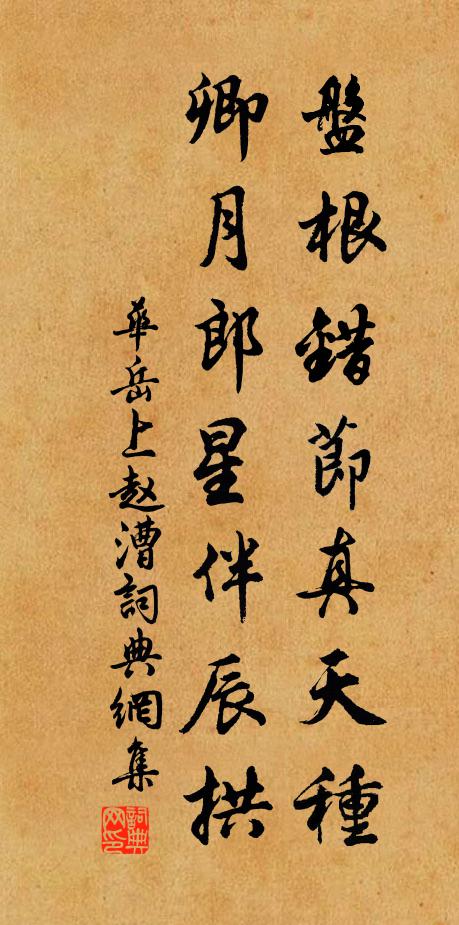 盤根錯節真天種
卿月郎星伴辰拱
華岳上赵漕詞典網集
詞典网印